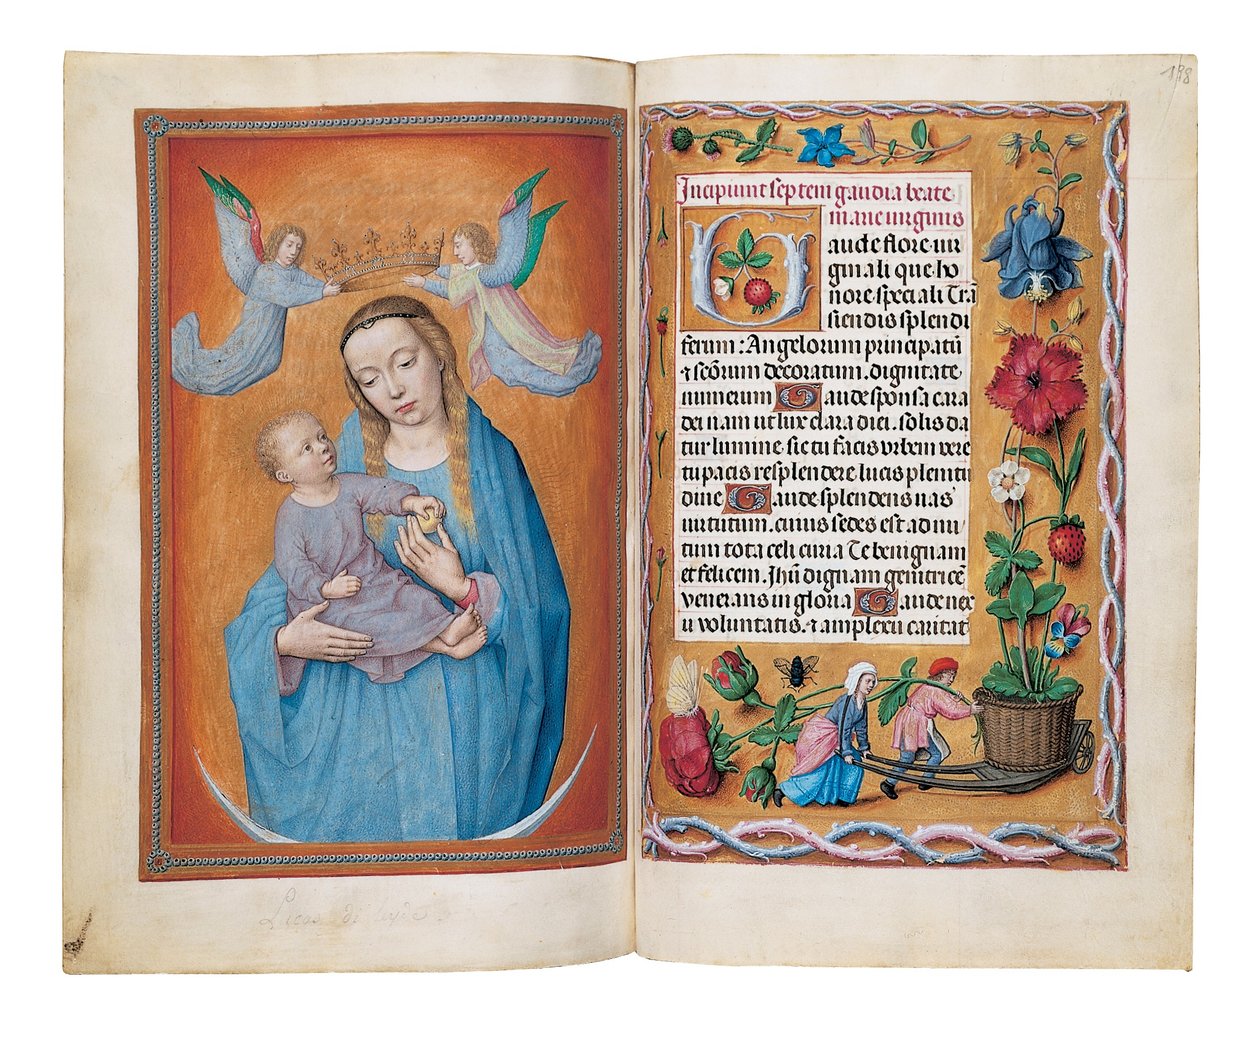 Lucas di leyde.
188
Incipiunt septem gaudia beate
marie uirginis
Gaude flore uir
ginali que ho
nore speciali Trā
siendis splendi
ferum : Angelorum principatū
⁊ sc̄orum decoratum. dignitate
numerum Gaude sponsa cara
dei nam ut lux clara diei. solis da
tur lumine sic tu facis vrbem vere
tu pacis resplendere. lucis plenitu
dine Gaude splendens uas
uirtutum. cuius sedes est ad nu
tum tota celi curia Te benignam
et felicem. Jhū dignam genitricē
venerans in gloria Gaude nex
u voluntatis. ⁊ amplexu caritat